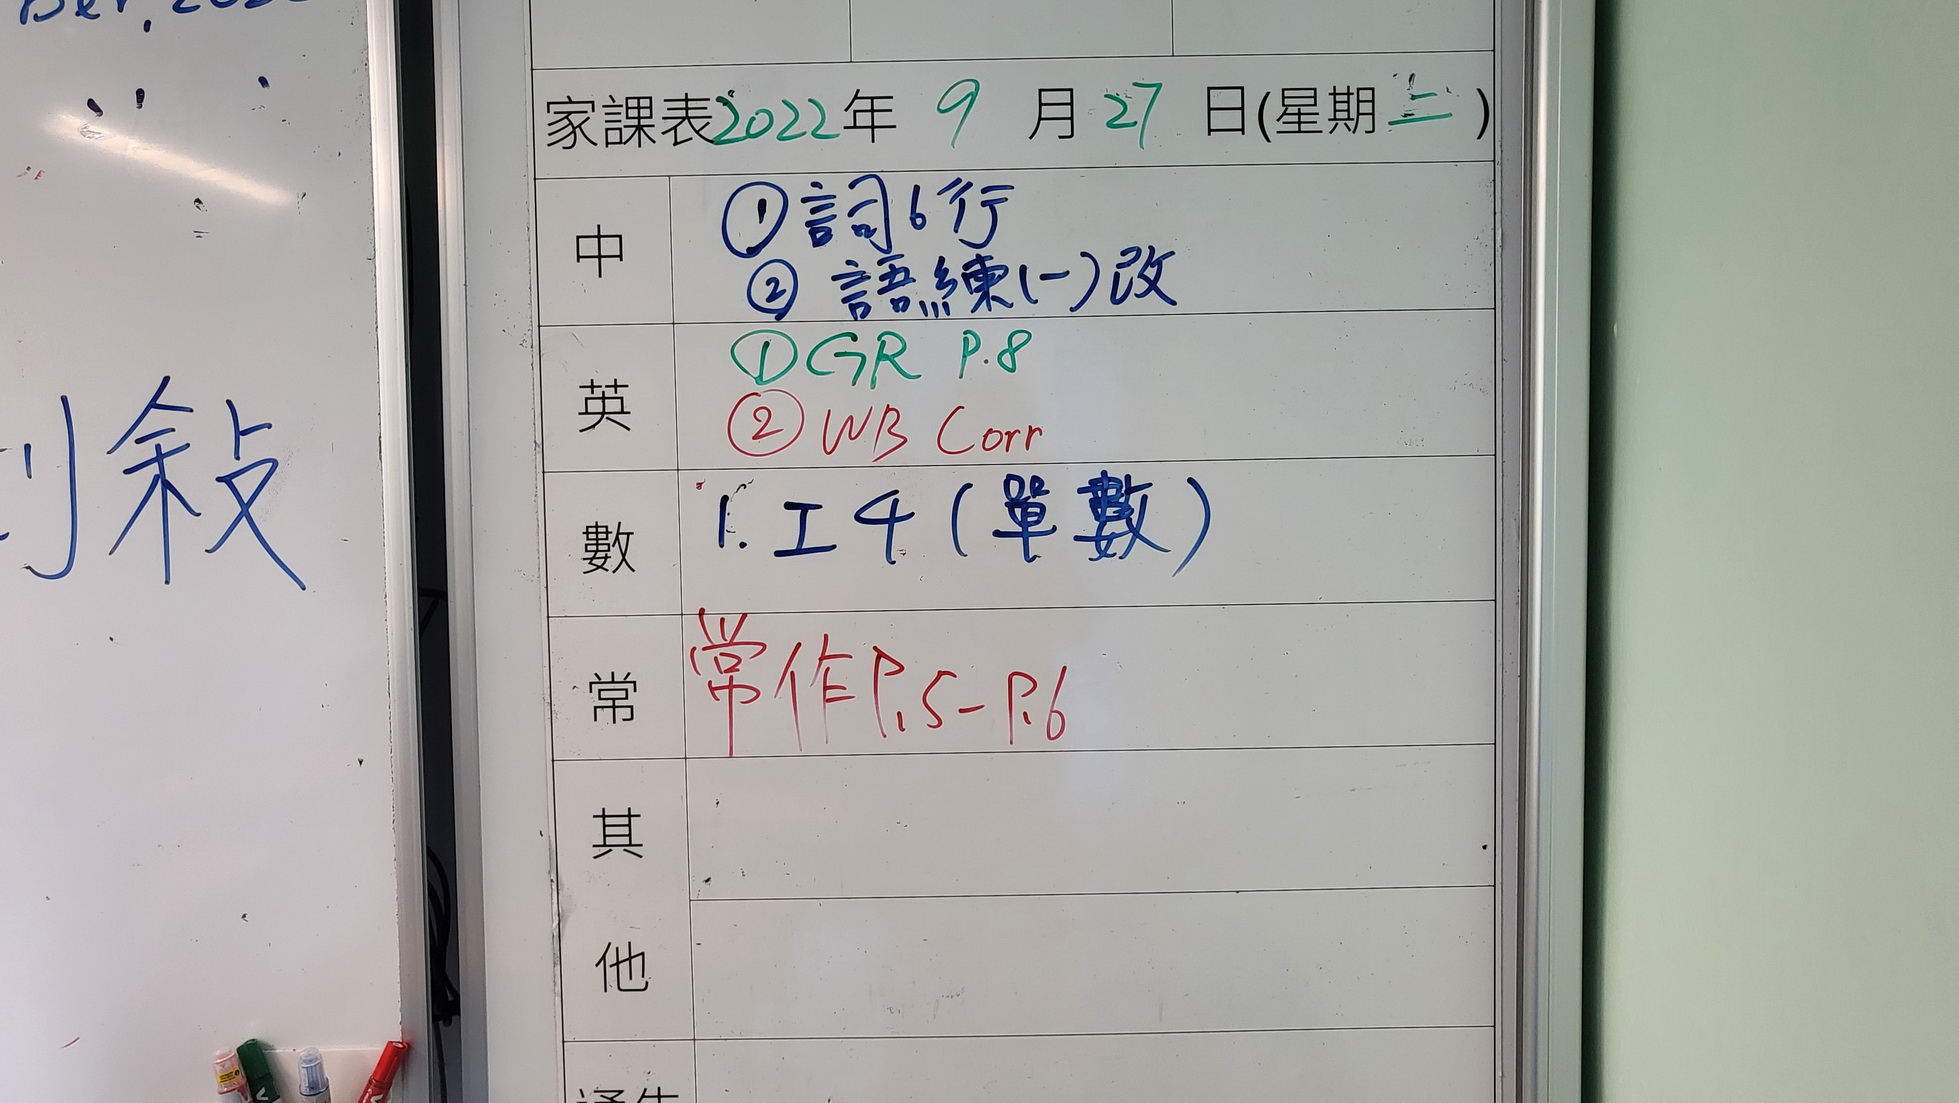 家課表2022年 9 月 27 日(星期二)
中
①詞6行
②語練(一)改
英
①GR P.8
②WB Corr
數
1. 工4(單數)
常
常作P.5-P.6
其他
敍